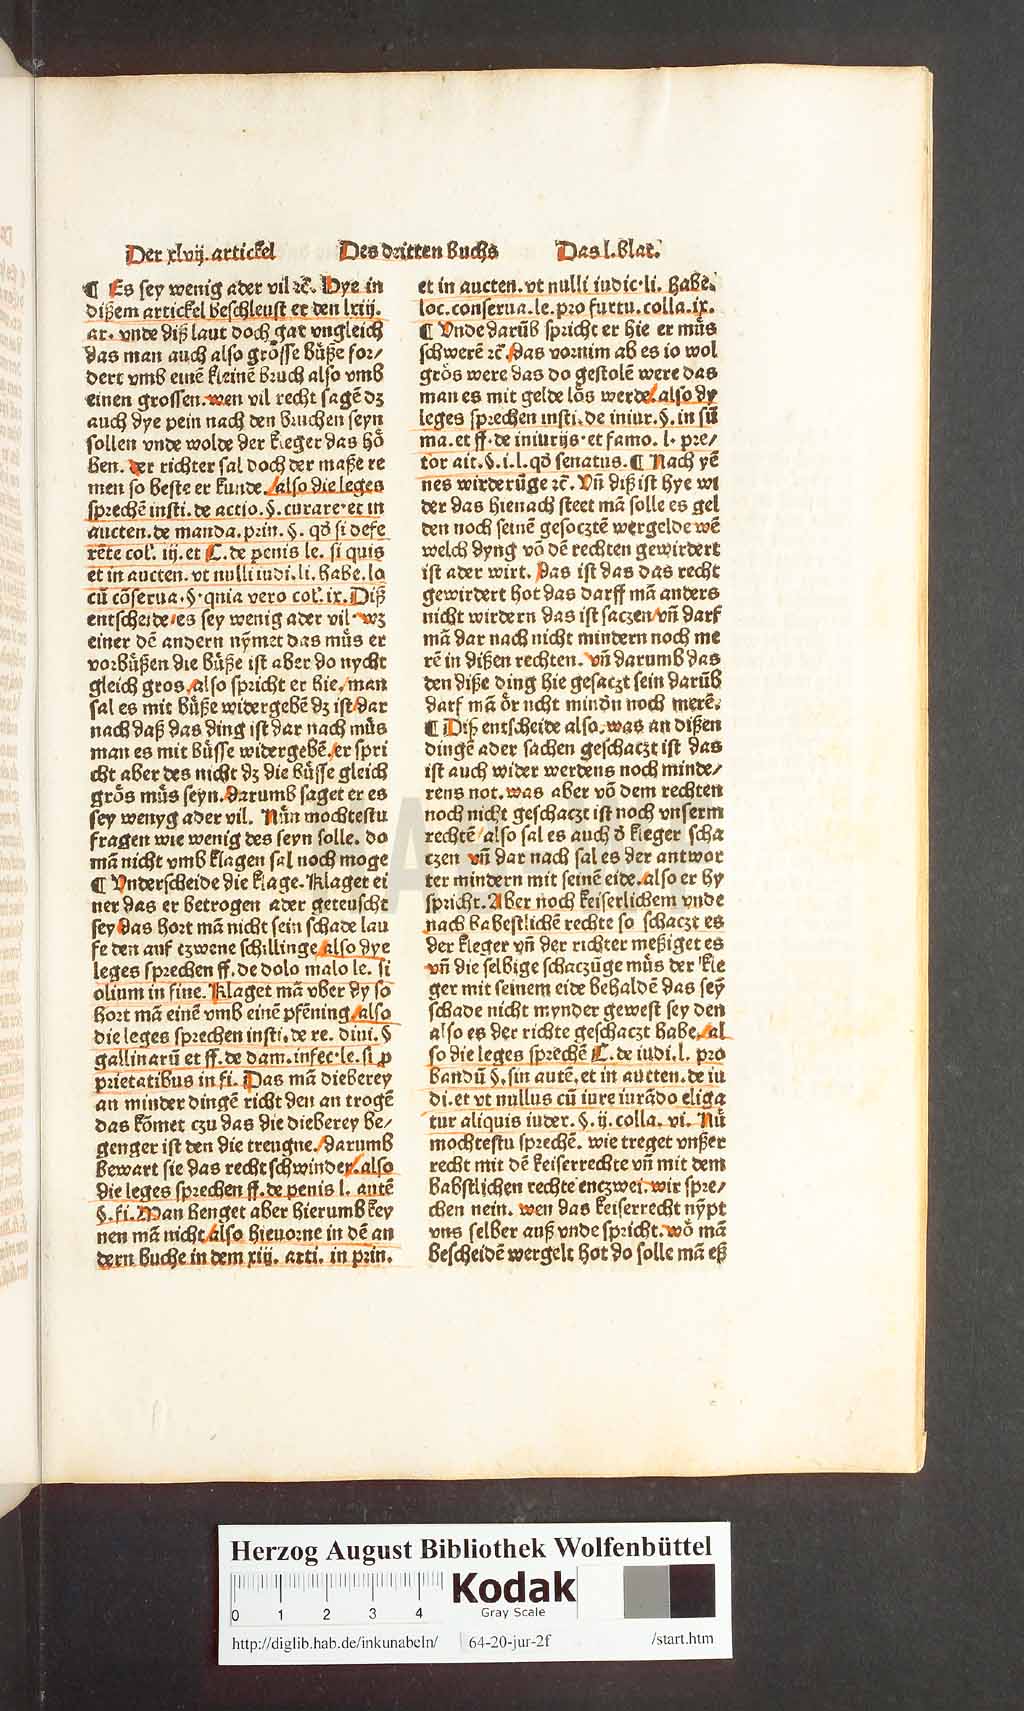 Der xlvij. artickel Des dritten buchs Das l. blat.
¶ Es sey wenig ader vil ꝛc̄. Hye in
dißem artickel beschleust er den lxiij.
ar. vnde diß laut doch gar vngleich
das man auch also grösse büße for/
dert vmb einē kleinē bruch also vmb
einen grossen. wen vil recht sagē dz
auch dye pein nach den bruchen seyn
sollen vnde wolde der kleger das hō
ben. der richter sal doch der maße re
men so beste er kunde / also die leges
sprechē insti. de actio. §. curare et in
aucten. de manda. prin. §. qd̄ si defe
rēte col'. iij. et C. de penis le. si quis
et in aucten. vt nulli iudi. li. habe. lo
cū cōserua. §. quia vero col'. ix. Diß
entscheide / es sey wenig ader vil. wz
einer dē andern nȳmet das müs er
vorbüßen die büße ist aber do nycht
gleich gros / also spricht er hie / man
sal es mit büße widergebē dz ist / dar
nach daß das ding ist dar nach müs
man es mit büsse widergebē / er spri
cht aber des nicht dz die büsse gleich
grös müs seyn. darumb saget er es
sey wenyg ader vil. Nün mochtestu
fragen wie wenig des seyn solle. do
mā nicht vmb klagen sal noch moge
¶ Vnderscheide die klage. Klaget ei
ner das er betrogen ader geteuscht
sey / das hort mā nicht sein schade lau
fe den auf czwene schillinge / also dye
leges sprechen ff. de dolo malo le. si
olium in fine. Klaget mā vber dy so
hort mā einē vmb einē pfēning / also
die leges sprechen insti. de re. diui. §
gallinarū et ff. de dam. infec. le. si ꝓ
prietatibus in fi. Das mā dieberey
an minder dingē richt den an trogē
das kōmet czu das die dieberey be/
genger ist den die treugne / darumb
bewart sie das recht schwinder / also
die leges sprechen ff. de penis l. autē
§. fi. Man henget aber hierumb key
nen mā nicht / also hieuorne in dē an
dern buche in dem xiij. arti. in prin.
et in aucten. vt nulli iudic. li. habe.
loc. conserua. le. pro furtu. colla. ix.
¶ Vnde darūb spricht er hie er müs
schwerē ꝛc̄. / das vornim ab es io wol
grös were das do gestolē were das
man es mit gelde lös werde / also dy
leges sprechen insti. de iniur. §. in sū
ma. et ff. de iniurijs et famo. l. pre/
tor ait. §. i. l. qd̄ senatus. ¶ Nach yē
nes wirderūge ꝛc̄. Vn̄ diß ist hye wi
der das hienach steet mā solle es gel
den noch seinē gesocztē wergelde wē
welch dyng vō dē rechten gewirdert
ist ader wirt. Das ist das das recht
gewirdert hot das darff mā anders
nicht wirdern das ist saczen / vn̄ darf
mā dar nach nicht mindern noch me
rē in dißen rechten. vn̄ darumb das
den diße ding hie gesaczt sein darūb
darf mā ör ncht mindn̄ noch merē.
¶ Diß entscheide also. was an dißen
dingē ader sachen geschaczt ist das
ist auch wider werdens noch minde/
rens not. was aber vō dem rechten
noch nicht geschaczt ist noch vnserm
rechtē / also sal es auch d̄ kleger scha
czen vn̄ dar nach sal es der antwor
ter mindern mit seinē eide. also er hy
spricht. Aber noch keiserlichem vnde
nach babestlichē rechte so schaczt es
der kleger vn̄ der richter meßiget es
vn̄ die selbige schaczūge müs der kle
ger mit seinem eide behaldē das sey
schade nicht mynder gewest sey den
also es der richte geschaczt habe. / al
so die leges sprechē C. de iudi. l. pro
bandū §. sin autē. et in aucten. de iu
di. et vt nullus cū iure iurādo eliga
tur aliquis iudex. §. ij. colla. vi. Nü
mochtestu sprechē. wie treget vnßer
recht mit dē keiserrechte vn̄ mit dem
babstlichen rechte enczwei. wir spre/
chen nein. wen das keiserrecht nȳpt
vns selber auß vnde spricht. wō mā
bescheidē wergelt hot do solle mā eß
Herzog August Bibliothek Wolfenbüttel
0 1 2 3 4
Kodak
Gray Scale
http://diglib.hab.de/inkunabeln/ 64-20-jur-2f /start.htm